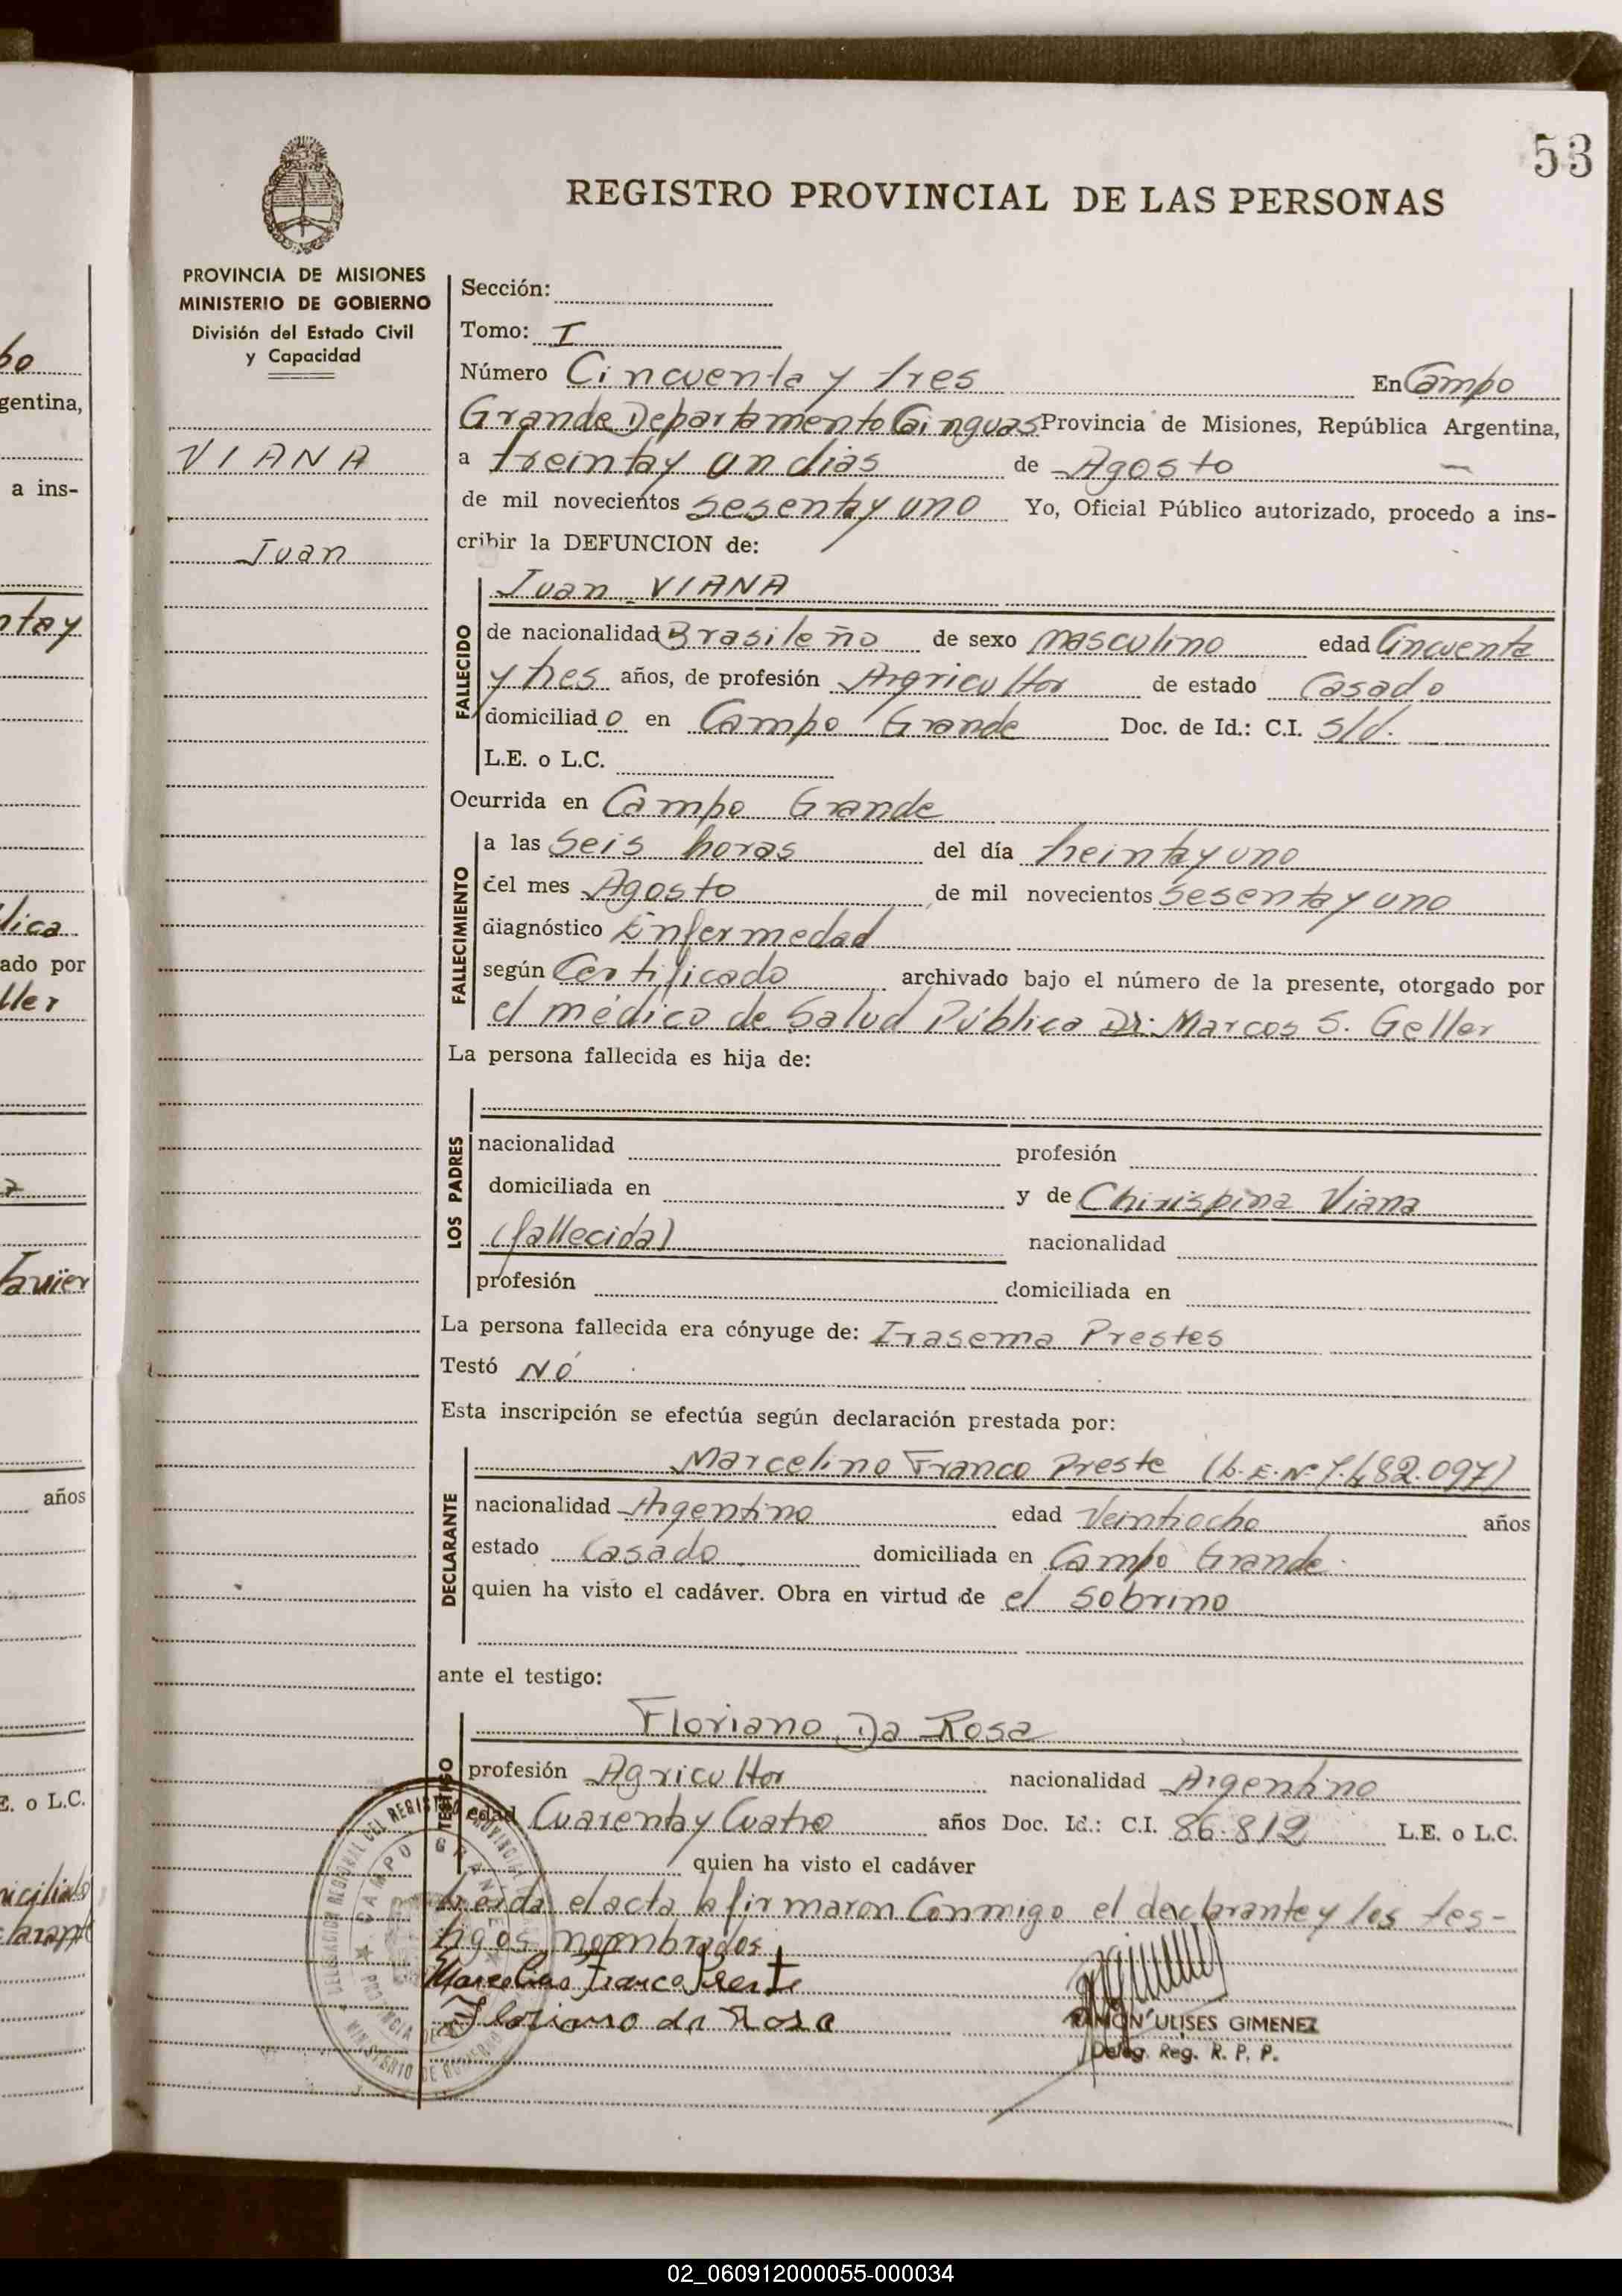 53
REGISTRO PROVINCIAL DE LAS PERSONAS
PROVINCIA DE MISIONES
MINISTERIO DE GOBIERNO
División del Estado Civil
y Capacidad
VIANA
Juan
Sección:
Tomo: I
Número Cincuenta y tres En Campo
Grande Departamento Cainguas Provincia de Misiones, República Argentina,
a treinta y un dias de Agosto
de mil novecientos sesenta y uno Yo, Oficial Público autorizado, procedo a ins-
cribir la DEFUNCION de:
FALLECIDO
Juan VIANA
de nacionalidad Brasileño de sexo masculino edad Cincuenta
y tres años, de profesión Agricultor de estado Casado
domiciliado en Campo Grande Doc. de Id.: C.I. s/d.
L.E. o L.C.
Ocurrida en Campo Grande
FALLECIMIENTO
a las Seis horas del día treinta y uno
del mes Agosto de mil novecientos Sesenta y uno
diagnóstico Enfermedad
según Certificado archivado bajo el número de la presente, otorgado por
el médico de Salud Pública Dr: Marcos S. Geller
La persona fallecida es hija de:
LOS PADRES
nacionalidad profesión
domiciliada en y de Chirispina Viana
(fallecida) nacionalidad
profesión domiciliada en
La persona fallecida era cónyuge de: Irasema Prestes
Testó NO
Esta inscripción se efectúa según declaración prestada por:
DECLARANTE
Marcelino Franco Preste (L.E. Nº 7.482.097)
nacionalidad Argentino edad Veintiocho años
estado Casado domiciliada en Campo Grande
quien ha visto el cadáver. Obra en virtud de el sobrino
ante el testigo:
TESTIGO
Floriano Da Rosa
profesión Agricultor nacionalidad Argentino
edad Cuarenta y Cuatro años Doc. Id.: C.I. 86.812 L.E. o L.C.
quien ha visto el cadáver
Leida el acta la firmaron Conmigo el declarante y los tes-
tigos nombrados
Marcelino Franco Preste
Floriano da Rosa
RAMON ULISES GIMENEZ
Deleg. Reg. R. P. P.
02_060912000055-000034